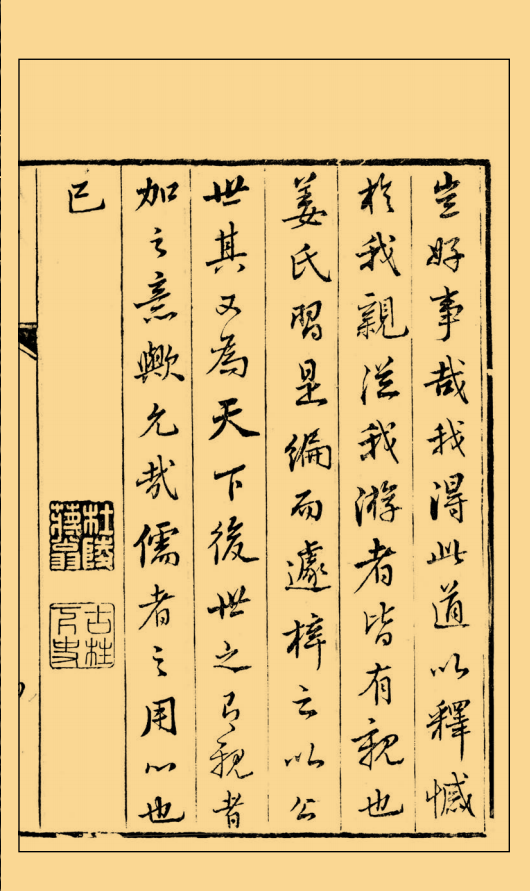 豈好事哉我得此道以釋憾
於我親從我游者皆有親也
姜氏習是編而遽梓云以公
世其又為天下後世之有親者
加之意歟允哉儒者之用心也
已
杜陵
古柱下史